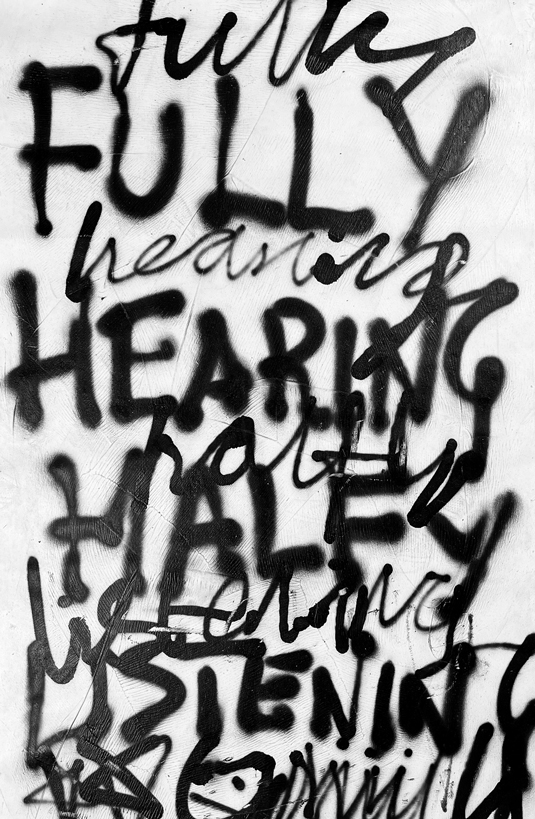 fully
FULLY
hearing
HEARING
halfy
HALFY
listening
LISTENING